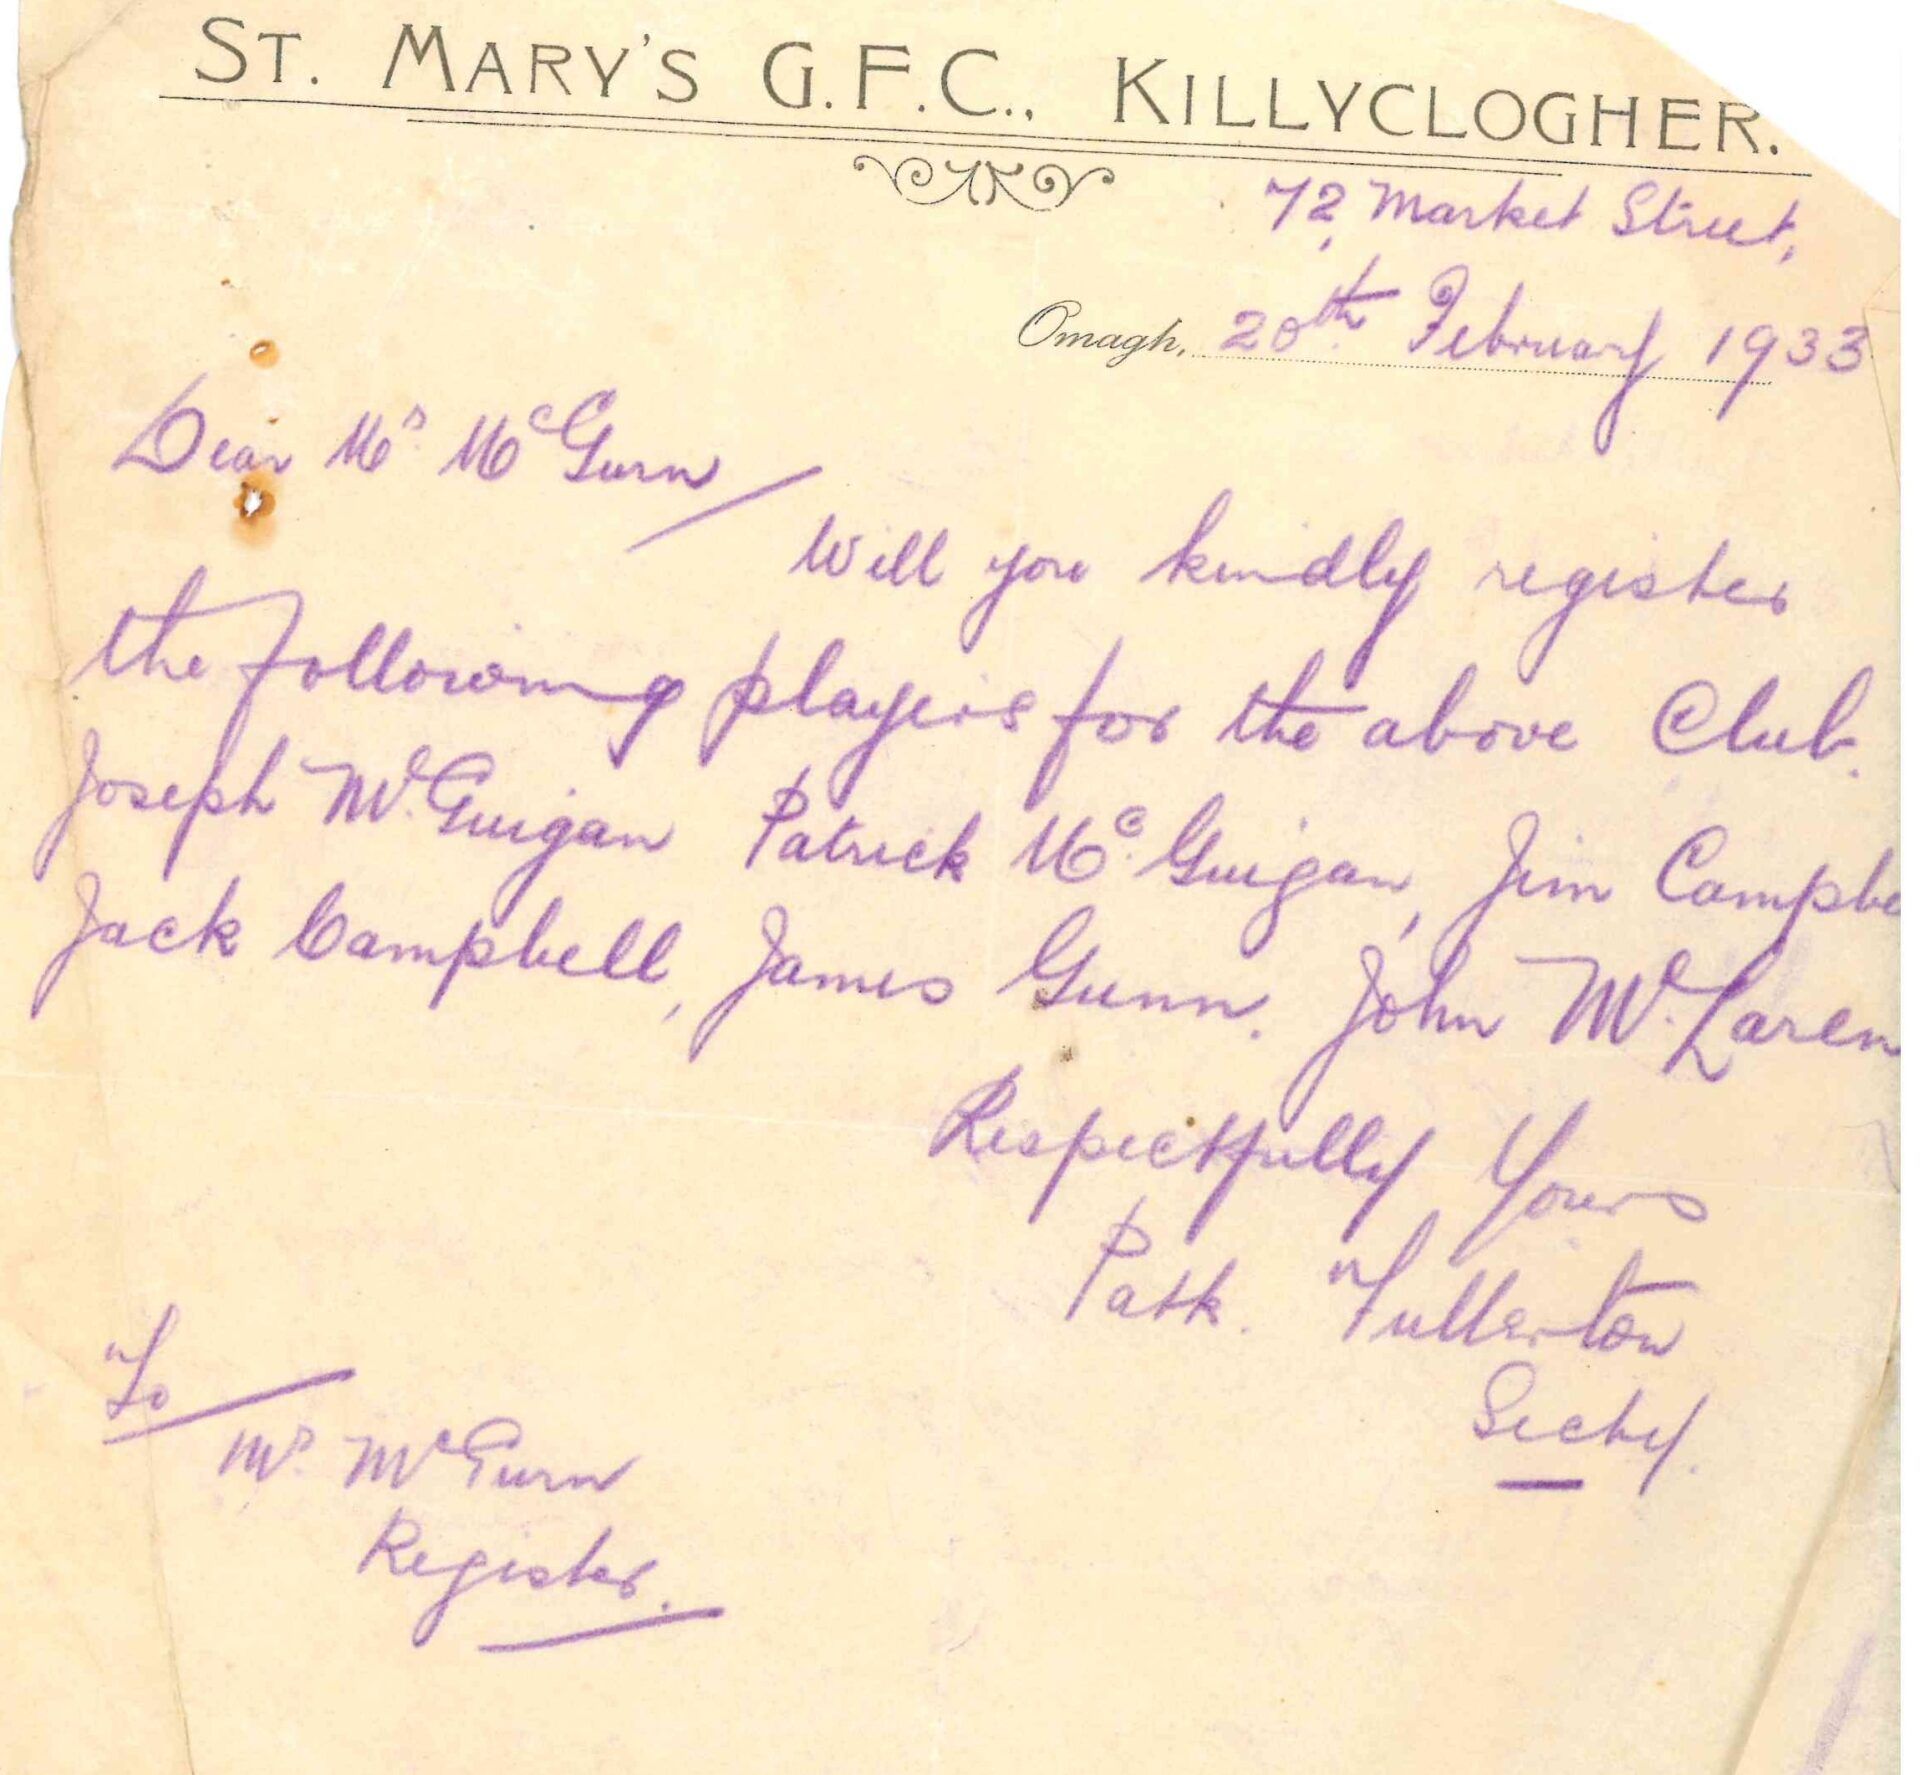 ST. MARY'S G.F.C., KILLYCLOGHER.
72, Market Street,
Omagh, 20th February 1933
Dear Mr McGurn
Will you kindly register
the following players for the above Club.
Joseph Mc.Guigan Patrick Mc.Guigan, Jim Campbe
Jack Campbell, James Gunn. John Mc.Laren
Respectfully Yours
Patk. Fullerton
Secty.
To
Mr. McGurn
Register.